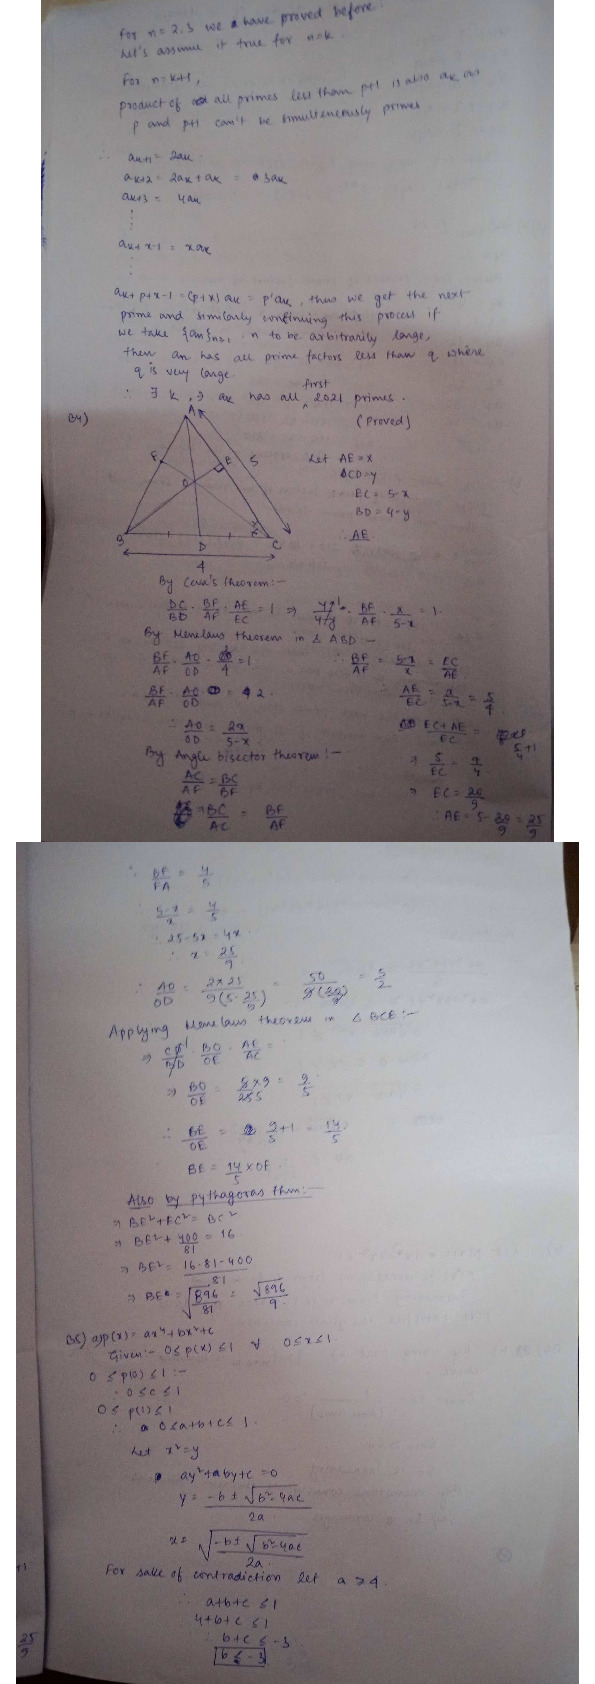 For n = 2, 3 we have proved before.
Let's assume it true for n=k.
For n=k+1,
product of all primes less than p+1 is also ak as
p and p+1 can't be simulteneously primes.
∴ ak+1 = 2ak
ak+2 = 2ak + ak = 3ak
ak+3 = 4ak
⋮
ak+x-1 = xak
⋮
ak+p+x-1 = (p+x) ak = p'ak, thus we get the next
prime and similarly continuing this process if
we take {an}n≥1, n to be arbitrarily large,
then an has all prime factors less than q where
q is very large.
∴ ∃ k, ∋ ak has all first 2021 primes.
(Proved)
B4)
A
F
E
5
O
B
D
C
4
Let AE = x
CD = y
EC = 5-x
BD = 4-y
∴ AE
By Ceva's theorem:-
DC/BD · BF/AF · AE/EC = 1 ⇒ y/4-y · BF/AF · x/5-x = 1
By Menelaus theorem in △ ABD:-
BF/AF · AO/OD · /4 = 1
∴ BF/AF = 5-x/x = EC/AE
BF/AF · AO/OD = 2
∴ AE/EC = x/5-x = 5/4
∴ AO/OD = 2x/5-x
EC+AE/EC = 5/4+1
By Angle bisector theorem:-
⇒ 5/EC = 9/4
AC/AF = BC/BF
⇒ EC = 20/9
⇒ BC/AC = BF/AF
∴ AE = 5 - 20/9 = 25/9
∴ BF/FA = 4/5
∴ 5-x/x = 4/5
∴ 25-5x = 4x
∴ x = 25/9
∴ AO/OD = 2×25/9(5-25/9) = 50/9(20/9) = 5/2
Applying Menelaus theorem in △ BCE:-
⇒ CD/BD · BO/OE · AE/AC =
⇒ BO/OE = 5×9/255 = 9/5
∴ BE/OE = 9/5+1 = 14/5
BE = 14/5 × OE.
Also by pythagoras thm:-
⇒ BE²+EC² = BC²
⇒ BE² + 400/81 = 16
⇒ BE² = 16·81-400/81
⇒ BE = √896/81 = √896/9
B5) a) p(x) = ax⁴+bx²+c
Given:- 0≤p(x)≤1 ∀ 0≤x≤1
0 ≤ p(0) ≤ 1:-
∴ 0≤c≤1
0≤ p(1)≤1
∴ 0≤a+b+c≤1.
Let x²=y
ay²+by+c=0
y = -b ± √b²-4ac/2a
x = √-b± √b²-4ac/2a
For sake of contradiction let a > 4.
∴ a+b+c ≤1
4+b+c ≤1
∴ b+c ≤ -3
b ≤ -3
25/9